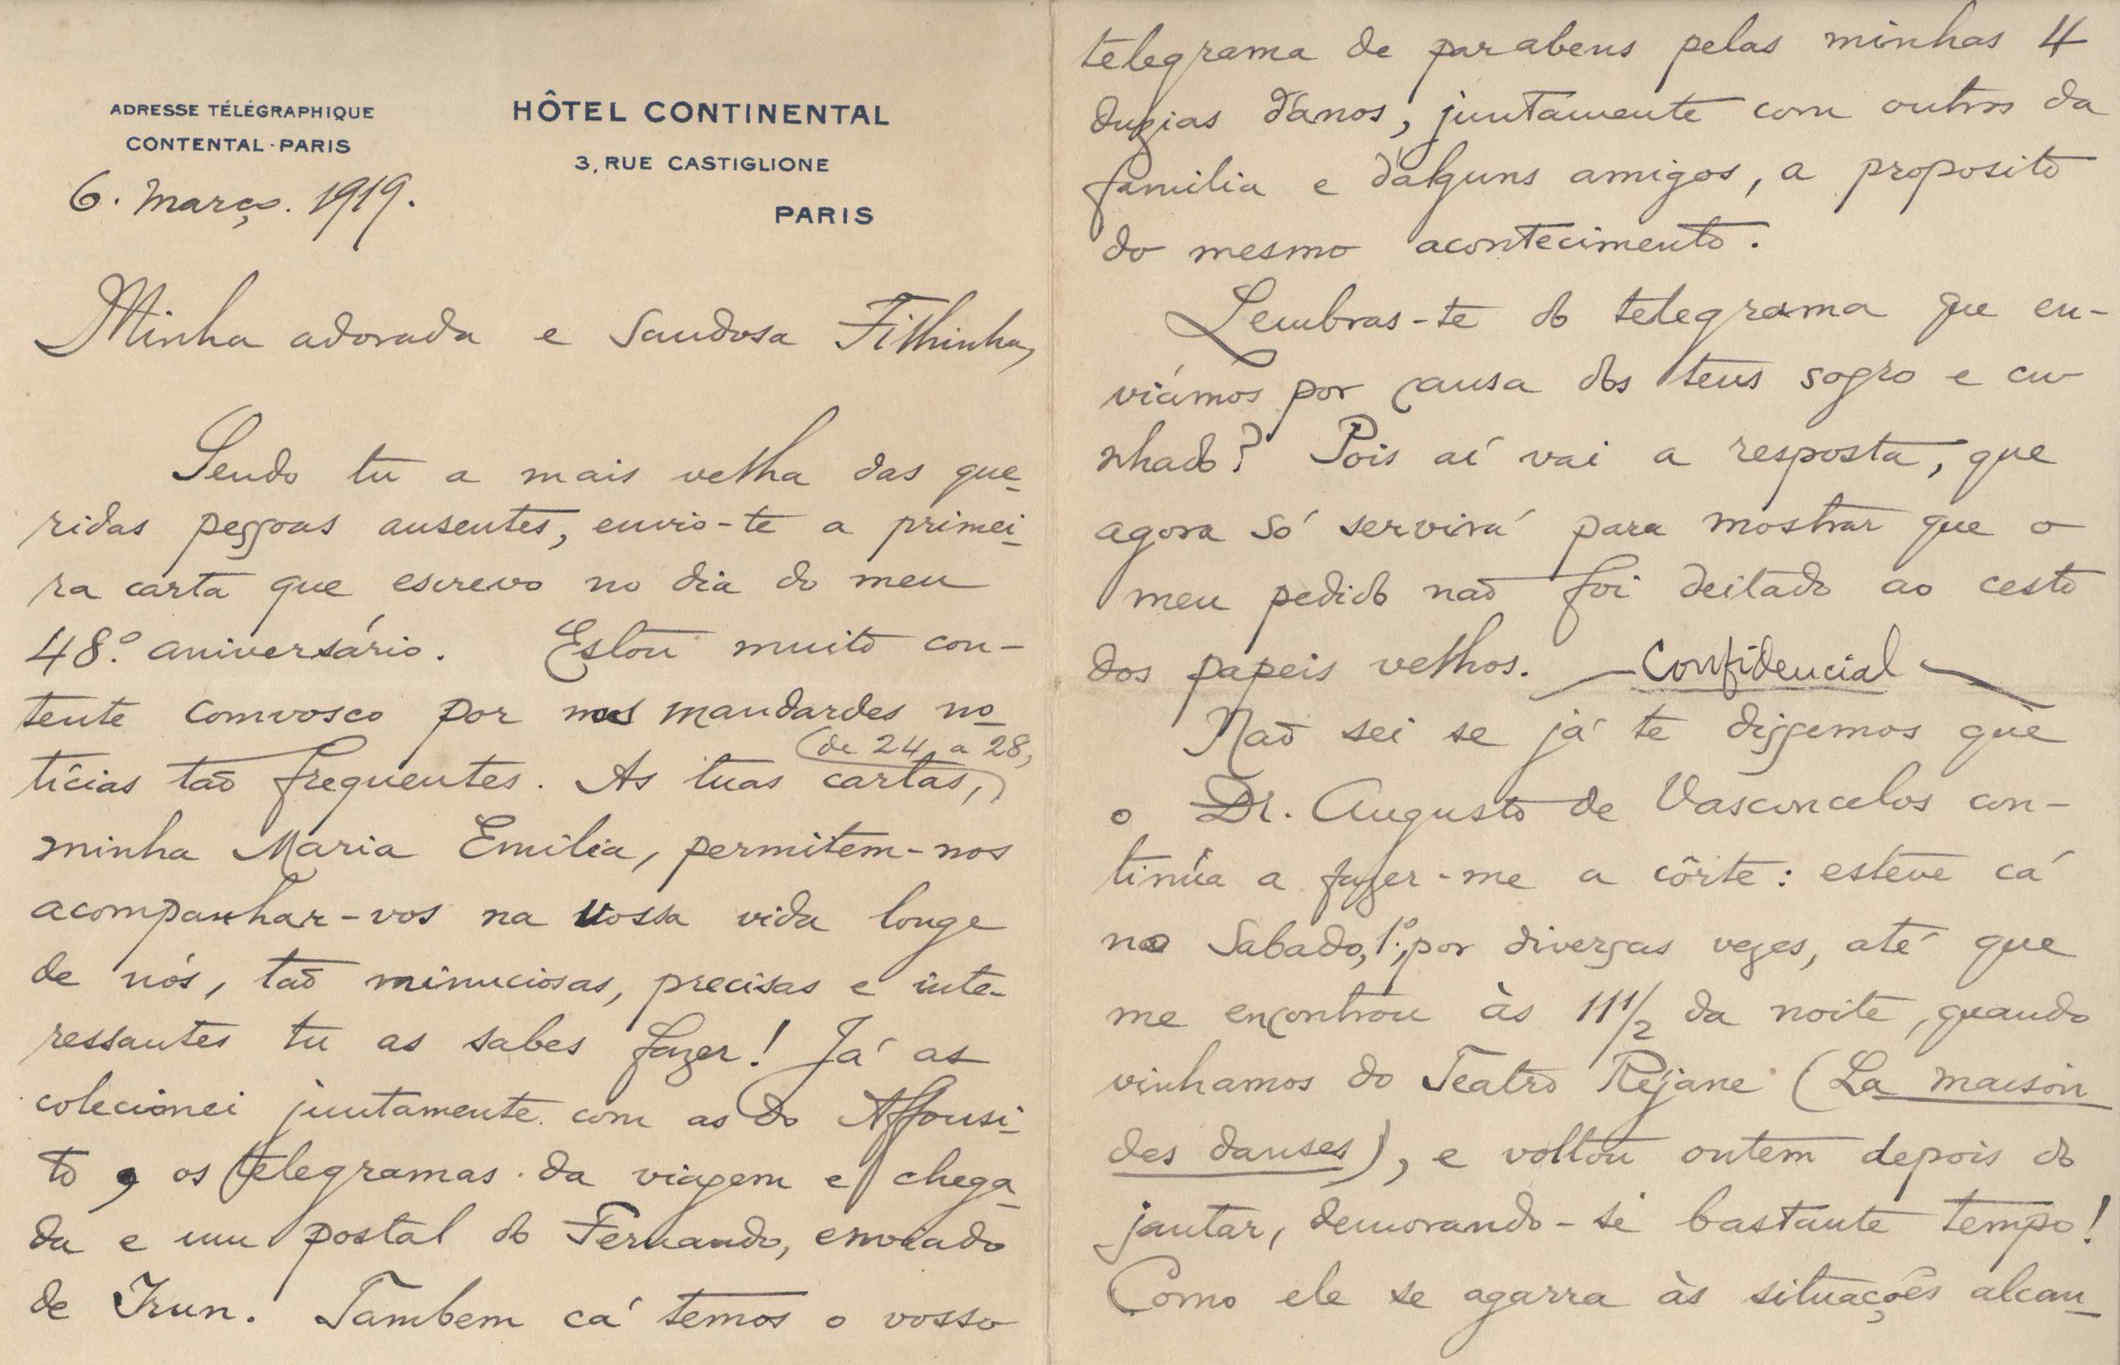 ADRESSE TÉLÉGRAPHIQUE
CONTENTAL-PARIS
HÔTEL CONTINENTAL
3, RUE CASTIGLIONE
PARIS
6. Março. 1919.
Minha adorada e saudosa Filhinha,
Sendo tu a mais velha das que-
ridas pessoas ausentes, envio-te a primei-
ra carta que escrevo no dia do meu
48.º aniversário. Estou muito con-
tente comvosco por nos mandardes no-
tícias tão frequentes. As tuas cartas,
(de 24 a 28,)
minha Maria Emilia, permitem-nos
acompanhar-vos na vossa vida longe
de nós, tão minuciosas, precisas e inte-
ressantes tu as sabes fazer! Já as
colecionei juntamente com as do Affonsi-
to, os telegramas da viagem e chega-
da e um postal do Fernando, enviado
de Irun. Tambem cá temos o vosso
telegrama de parabens pelas minhas 4
duzias d'anos, juntamente com outros da
familia e d'alguns amigos, a proposito
do mesmo acontecimento.
Lembras-te do telegrama que en-
viámos por causa dos teus sogro e cu-
nhado? Pois aí vai a resposta, que
agora só servirá para mostrar que o
meu pedido não foi deitado ao cesto
dos papeis velhos. Confidencial
Não sei se já te dissemos que
o Dr. Augusto de Vasconcelos con-
tinúa a fazer-me a côrte: esteve cá
no Sabado, 1.º, por diversas vezes, até que
me encontrou às 11 1/2 da noite, quando
vinhamos do Teatro Réjane (La maison
des danses), e voltou ontem depois do
jantar, demorando-se bastante tempo!
Como ele se agarra às situações alcan-